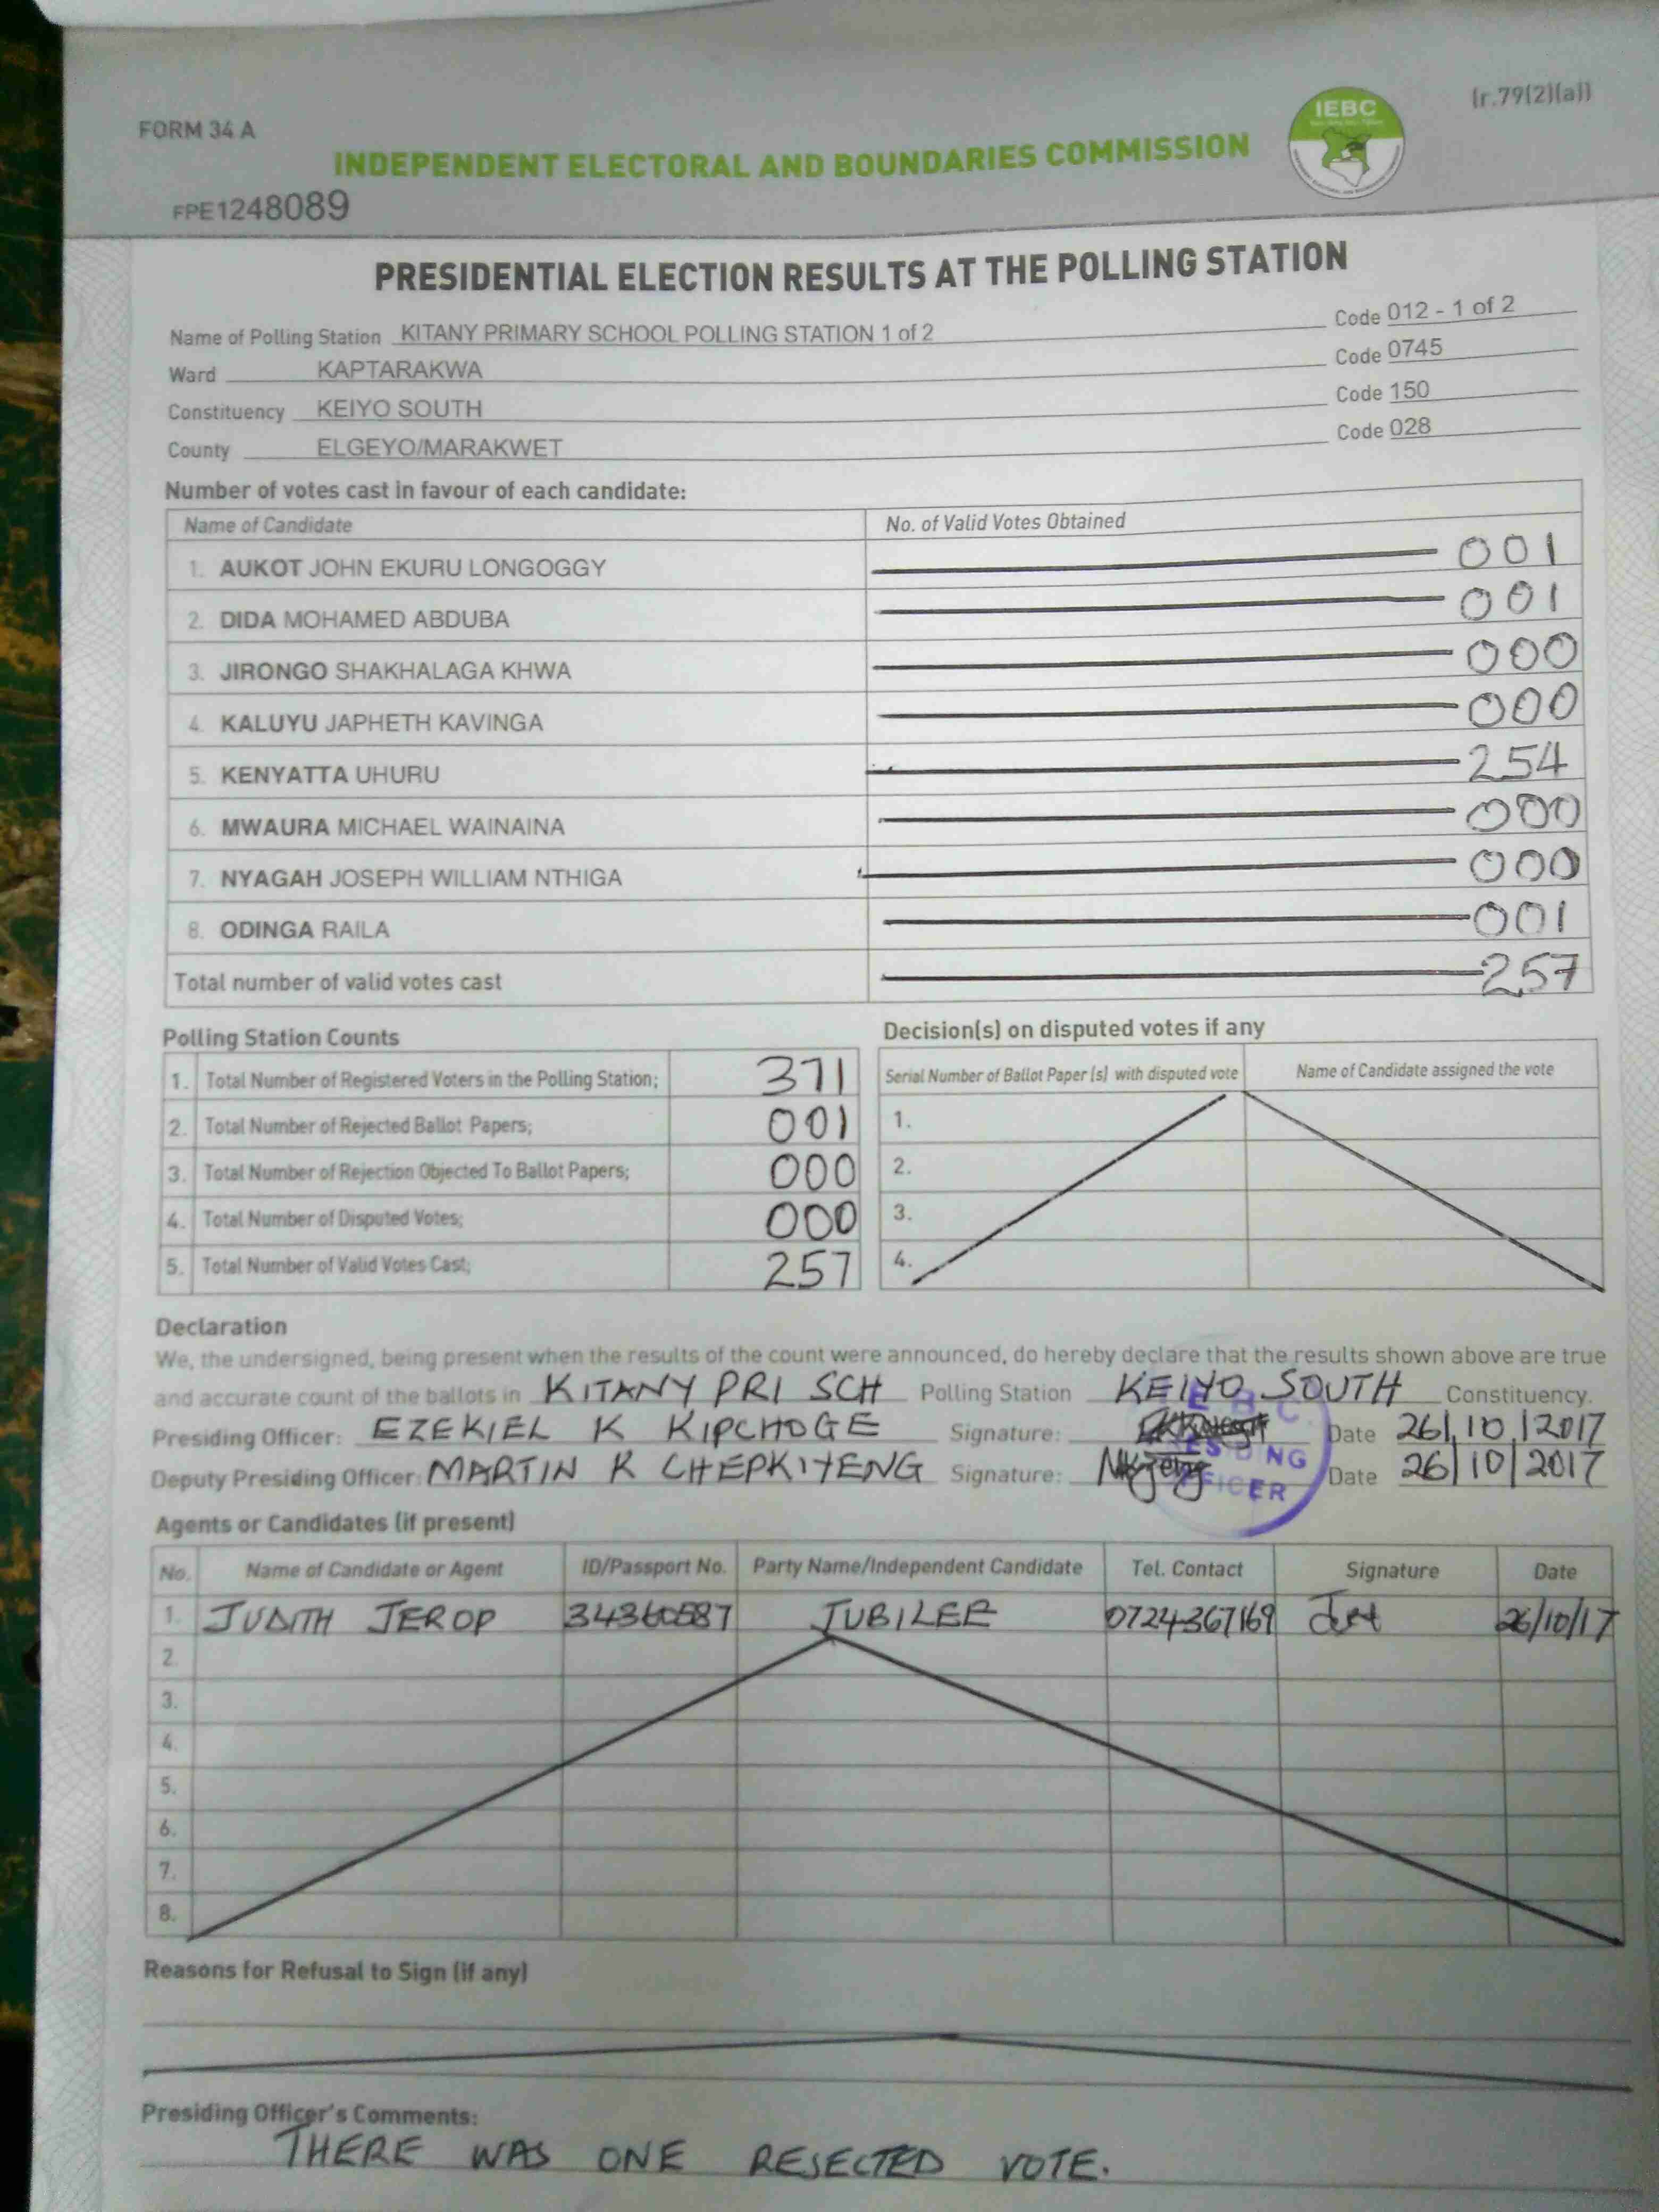 (r.79(2)(a))
FORM 34 A
IEBC
INDEPENDENT ELECTORAL AND BOUNDARIES COMMISSION
FPE1248089
PRESIDENTIAL ELECTION RESULTS AT THE POLLING STATION
Name of Polling Station KITANY PRIMARY SCHOOL POLLING STATION 1 of 2 Code 012 - 1 of 2
Ward KAPTARAKWA Code 0745
Constituency KEIYO SOUTH Code 150
County ELGEYO/MARAKWET Code 028
Number of votes cast in favour of each candidate:
Name of Candidate No. of Valid Votes Obtained
1. AUKOT JOHN EKURU LONGOGGY 001
2. DIDA MOHAMED ABDUBA 001
3. JIRONGO SHAKHALAGA KHWA 000
4. KALUYU JAPHETH KAVINGA 000
5. KENYATTA UHURU 254
6. MWAURA MICHAEL WAINAINA 000
7. NYAGAH JOSEPH WILLIAM NTHIGA 000
8. ODINGA RAILA 001
Total number of valid votes cast 257
Polling Station Counts
1. Total Number of Registered Voters in the Polling Station; 371
2. Total Number of Rejected Ballot Papers; 001
3. Total Number of Rejection Objected To Ballot Papers; 000
4. Total Number of Disputed Votes; 000
5. Total Number of Valid Votes Cast; 257
Decision(s) on disputed votes if any
Serial Number of Ballot Paper (s) with disputed vote Name of Candidate assigned the vote
1.
2.
3.
4.
Declaration
We, the undersigned, being present when the results of the count were announced, do hereby declare that the results shown above are true
and accurate count of the ballots in KITANY PRI SCH Polling Station KEIYO SOUTH Constituency.
Presiding Officer: EZEKIEL K KIPCHOGE Signature: Date 26/10/2017
Deputy Presiding Officer: MARTIN K CHEPKIYENG Signature: Date 26/10/2017
Agents or Candidates (if present)
No. Name of Candidate or Agent ID/Passport No. Party Name/Independent Candidate Tel. Contact Signature Date
1. JUDITH JEROP JUBILEE 0724367169 26/10/17
2.
3.
4.
5.
6.
7.
8.
Reasons for Refusal to Sign (if any)
Presiding Officer's Comments:
THERE WAS ONE REJECTED VOTE.